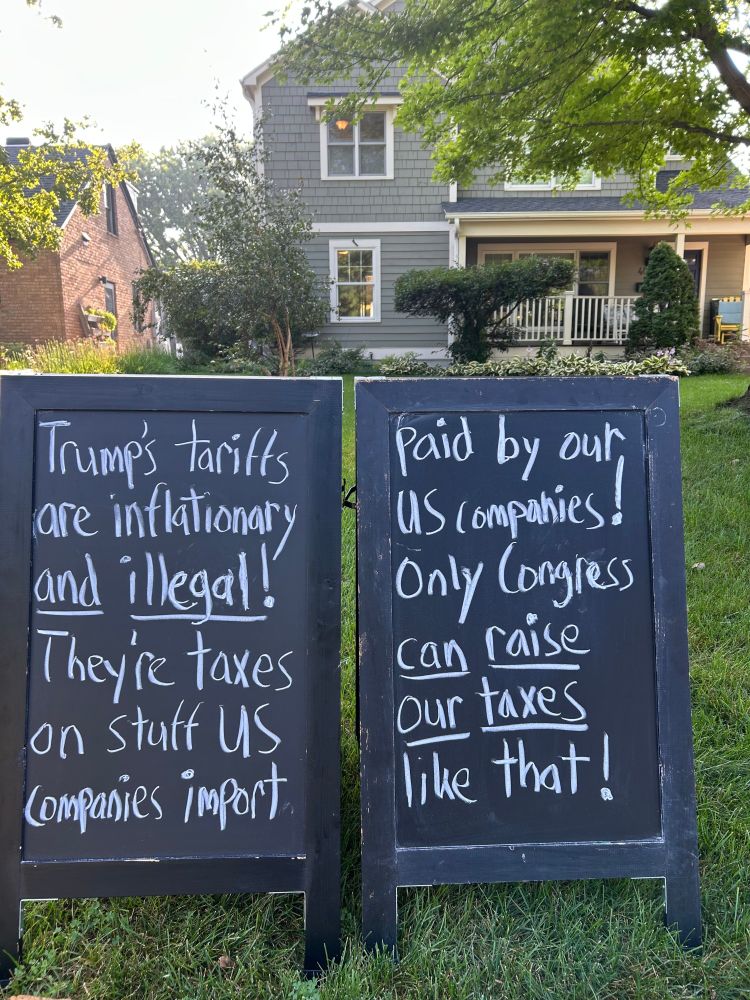 Trump's tariffs
are inflationary
and illegal!
They're taxes
on stuff US
companies import
Paid by our
US companies!
Only Congress
can raise
our taxes
like that!